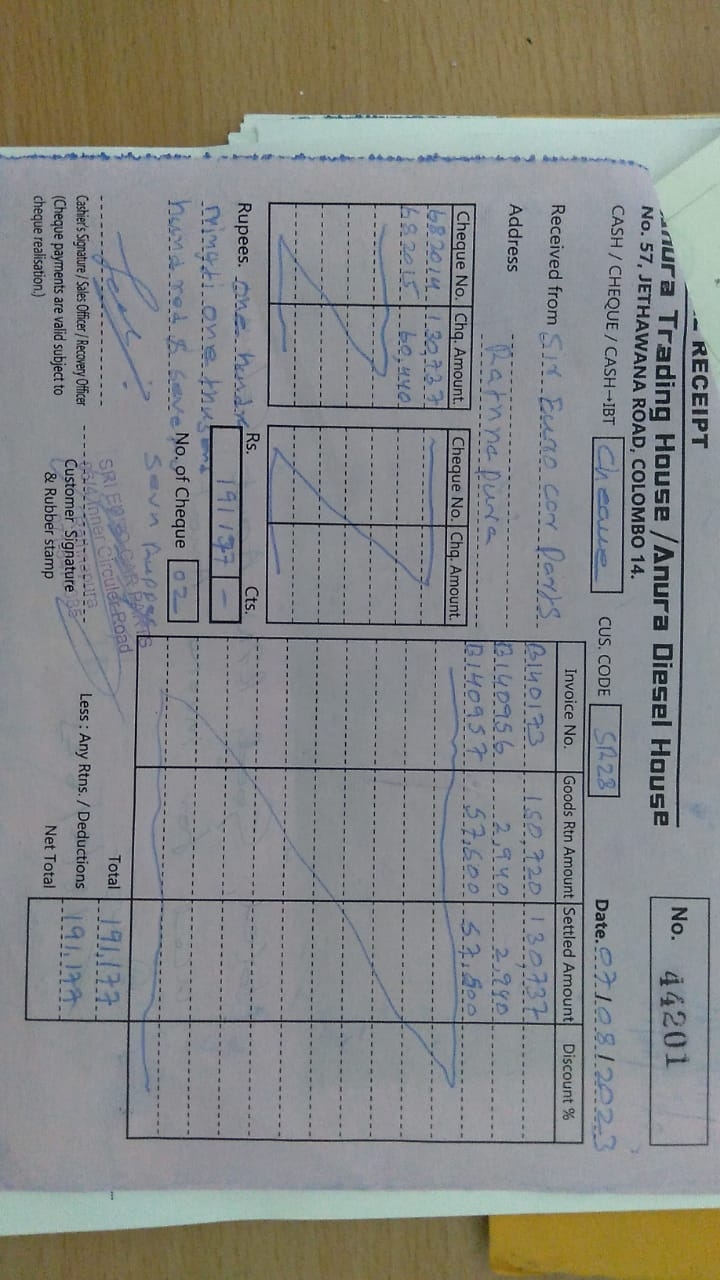 RECEIPT
No. 44201
nura Trading House / Anura Diesel House
No. 57, JETHAWANA ROAD, COLOMBO 14.
CASH / CHEQUE / CASH→IBT Cheque CUS. CODE SR28 Date. 07/08/2023
Received from Sri Euro car Parts.
Address Rathnapura
Cheque No. Chq. Amount. Cheque No. Chq. Amount.
682014 130737
682015 60,440
Invoice No. Goods Rtn Amount Settled Amount Discount %
B140173 150,720 130,737
B140956 2,940 2,940
B140957 57,600 57,500
Rupees. one hundred
ningti one thusand
hundred & seventy
Sevn Ruppes
Rs. Cts.
191177 -
No. of Cheque 02
Total 191,177
Less : Any Rtns. / Deductions
Net Total 191,177
Cashier's Signature / Sales Officer / Recovery Officer
(Cheque payments are valid subject to
cheque realisation.)
Customer Signature
& Rubber stamp
SRI EURO CAR PARTS
Inner Circuler Road
Rathnapura